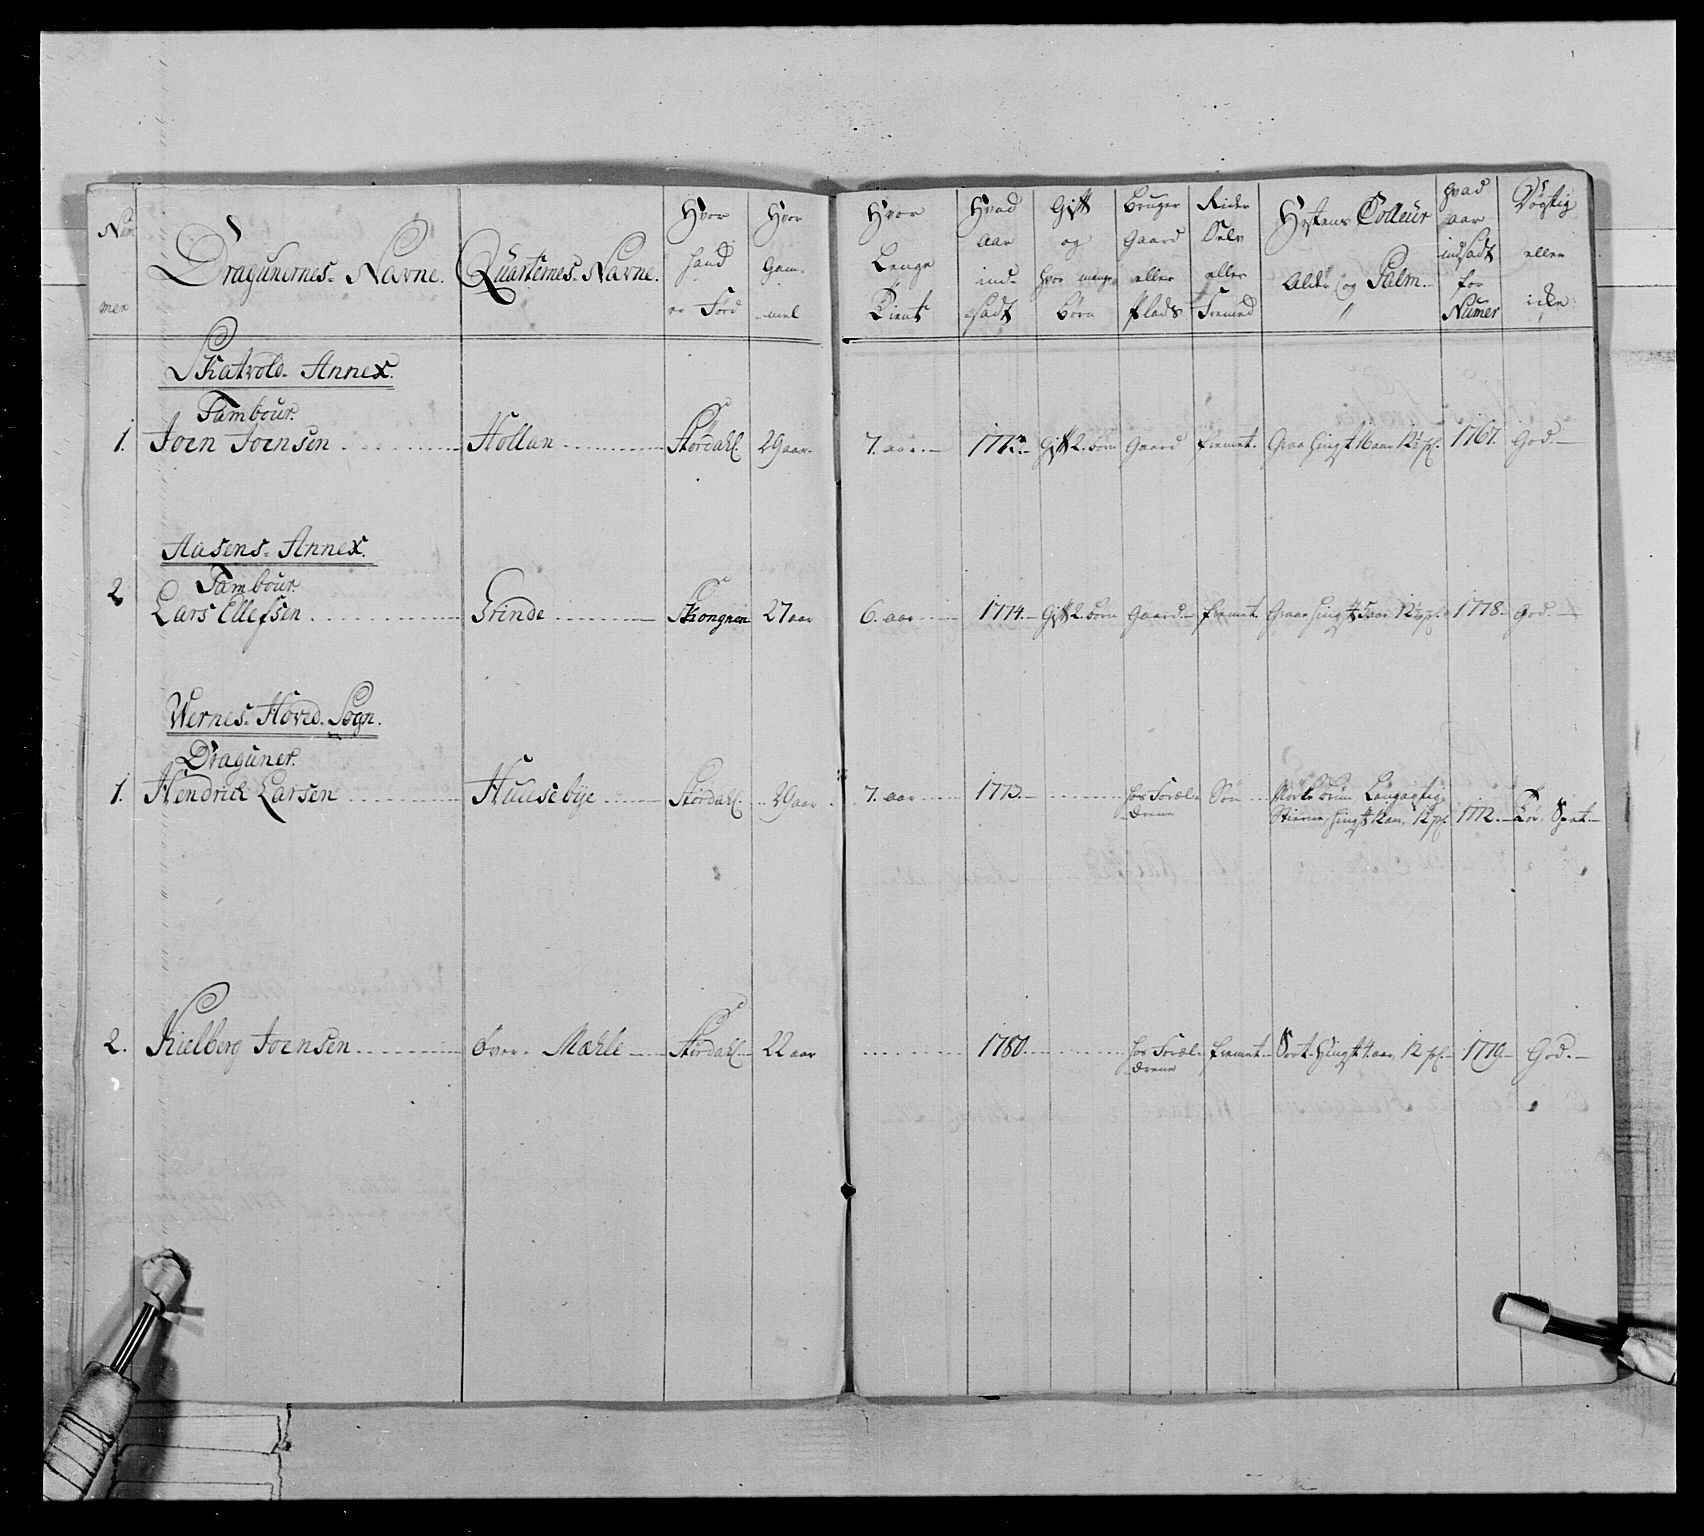 Num
mer
Dragunernes Navne.
Quarternes Navne.
Hvor
hand
er Föd
Hvor
Gam-
mel
Hvor
Lenge
Tient
Hvad
aar
ind-
sadt
Gift
og
hvor mange
börn
bruger
Gaard
eller
Plads
Rider
Selv
eller
Fremed
Hestens Colleur
Alder og Palm.
hvad
aar
indsadt
for
Numer
Dögtig
eller
icke
Skatvold. Annex.
Tambour.
1. Joen Joensen Hollan Stördahl. 29 aar. 7. aar. Gift 2. börn Gaard fremet. Graa Hingst 16 aar 12½ pl. 1767. God.
Aasens. Annex.
Tambour.
2 Lars Ellefsen Grinde Skongnen 27 aar 6. aar 1774. Gift 2. börn Gaard. fremet. Graae Hingst 5 aar 12½ pl. 1778. God.
Wernes. Hoved. Sogn.
Draguner.
1. Hendrick Larsen Huusebÿe Stördahl. 29 aar 7. aar 1773. hos Foræl- Sön Mörkebrun
drene Stierne, Hingst 12 aar, 12 pl. 1772. Spat.
2. Kielberg Joensen över. Mæhle Stördahl. 22 aar 1780. hos Foræl- fremet. Sort. Hingst 4. aar, 12 pl. 1779. God.
drene